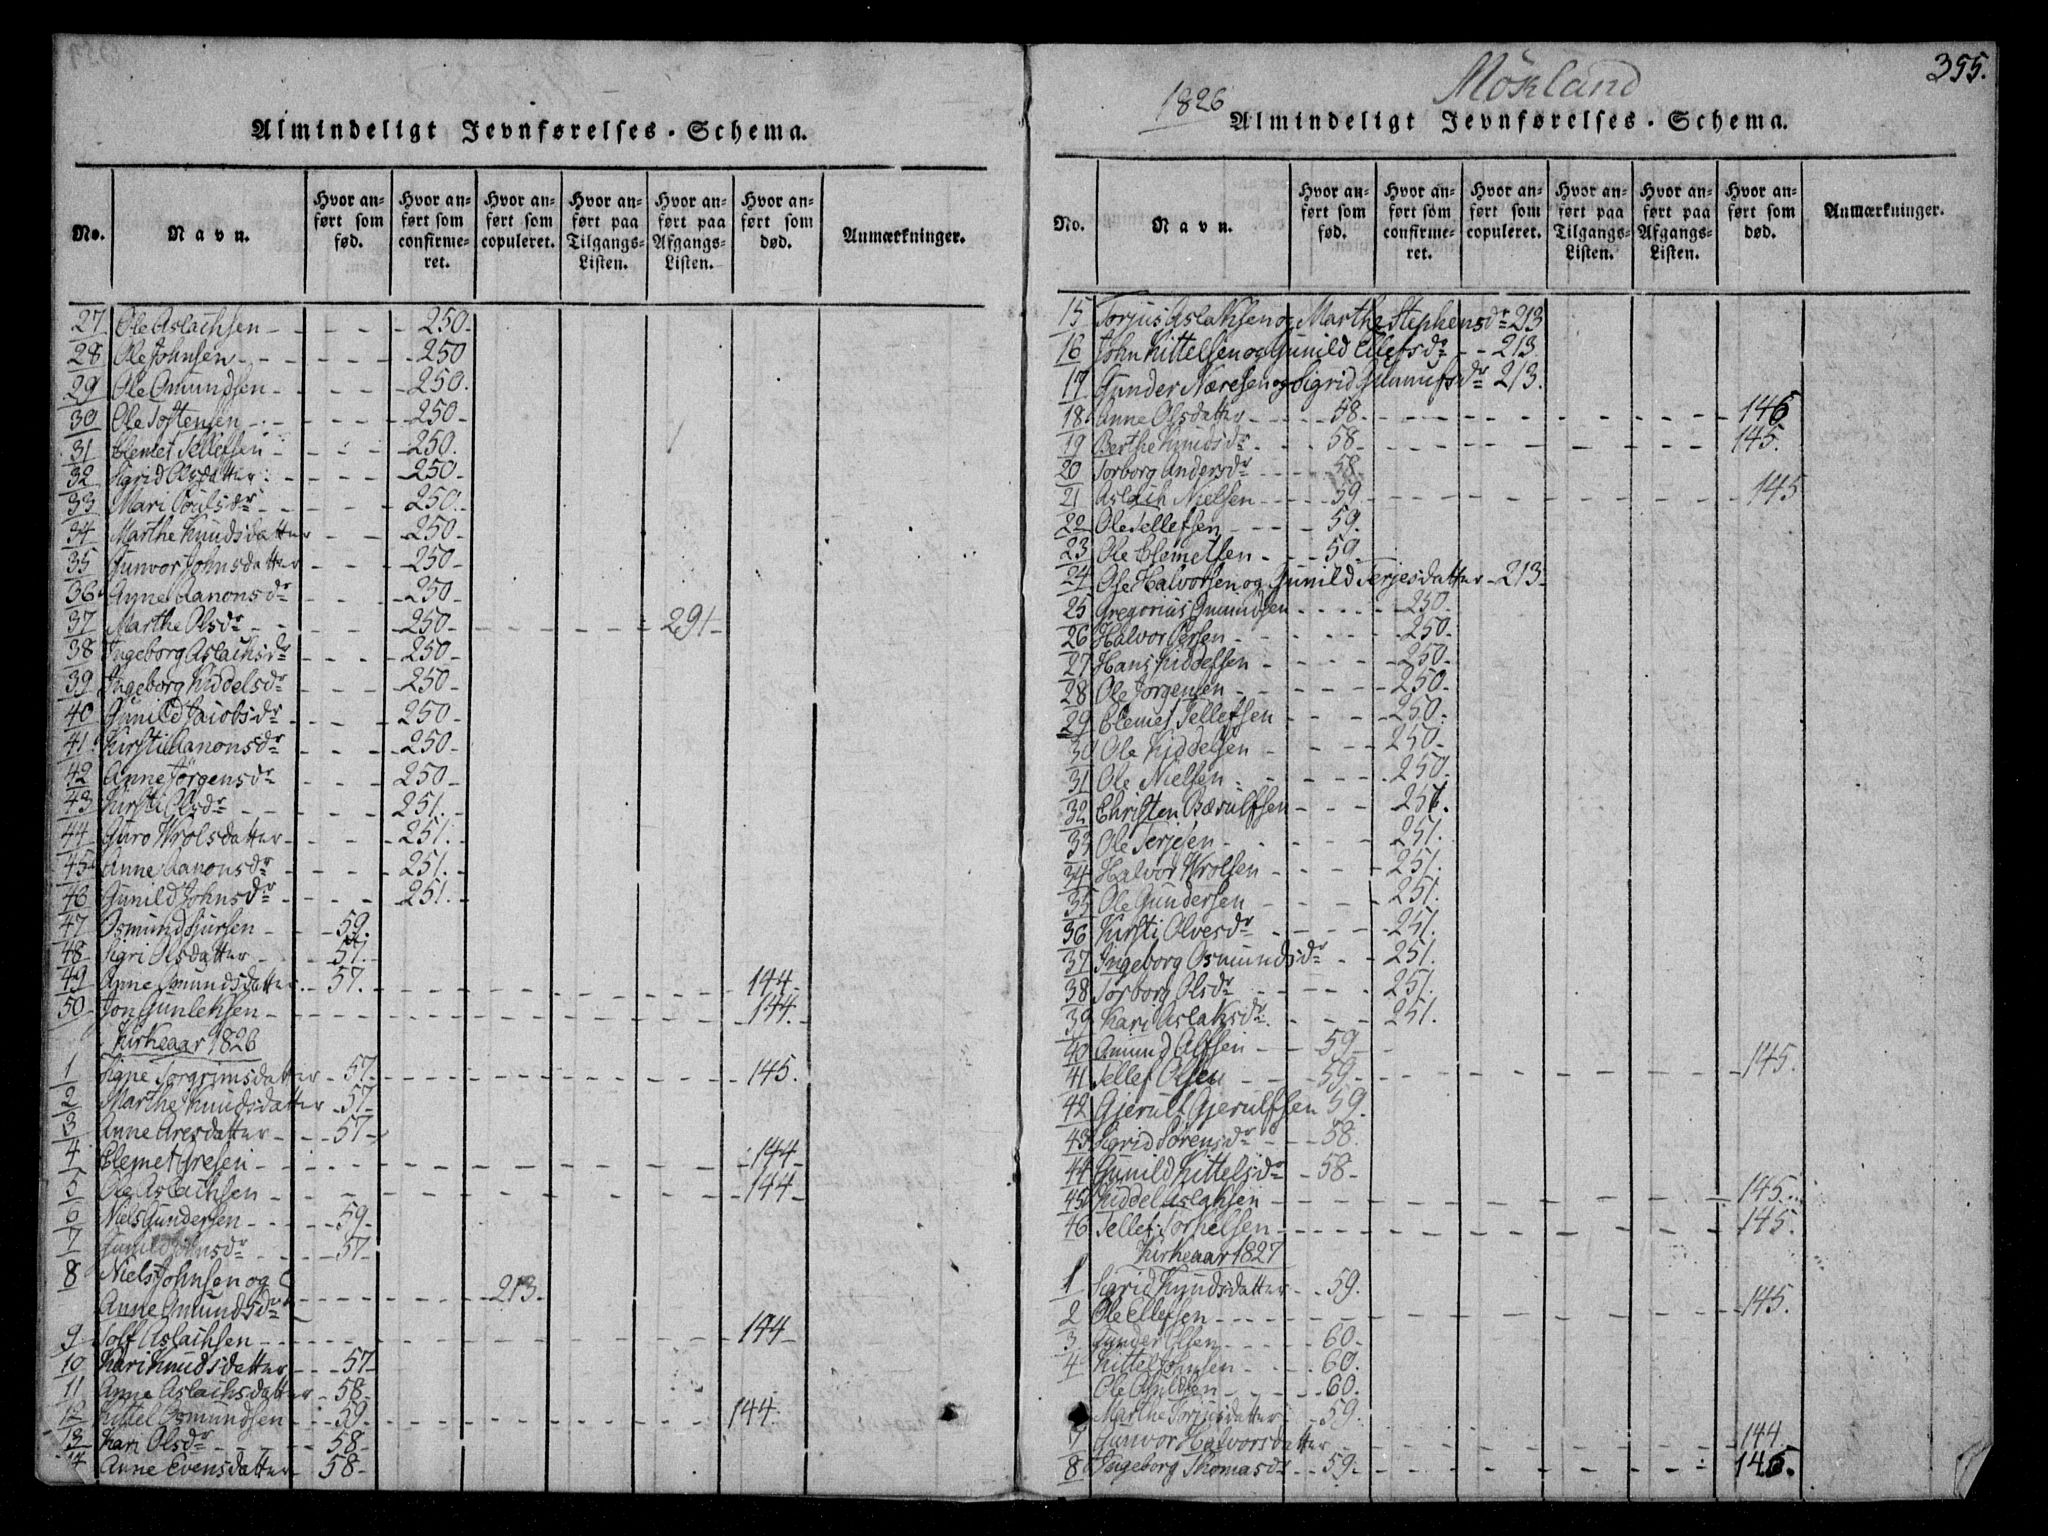 Almindeligt Jevnførelses-Schema.
No.
Navn.
Hvor anført som fød.
Hvor anført som confirmeret.
Hvor anført som copuleret.
Hvor anført paa Tilgangs-Listen.
Hvor anført paa Afgangs-Listen.
Hvor anført som død.
Anmærkninger.
27 Ole Aslachsen 250
28 Ole Johnsen 250
29 Ole Omundsen 250.
30 Ole Tostensen 250
31 Clemet Tellefsen 250.
32 Sigrid Olsdatter 250
33 Mari Poulsdr 250
34 Marthe Knudsdatter 250
35 Gunvor Johnsdatter 250
36 Anne Aanonsdr 250
37 Marthe Olsdr 250 291
38 Ingeborg Aslachsdr 250
39 Ingeborg Kiddelsdr 250
40 Gunild Jacobsdr 250
41 Kirsti Aanonsdr 250
42 Anne Jörgensdr 250
43 Kirsti Olsdr 251.
44 Guro Wrolsdatter 251.
45 Anne Aanonsdr 251.
46 Gunild Johnsdr 251.
47 Osmund Siursen 59.
48 Sigri Olsdatter 57.
49 Anne Omundsdatter 57. 144
50 Jon Gunleksen 144.
Kirkeaar 1826
1 Signe Torgrimsdatter 57 145.
2 Marthe Knudsdatter 57
3 Anne Aresdatter 57
4 Clemet Gresen 144
5 Ole Aslachsen 144
6 Niels Gundersen 59
7 Gunild Johnsdr 57
8 Niels Johnsen og
Anne Omundsdr 213.
9 Tolf Aslachsen 144
10 Kari Knudsdatter 57
11 Anne Aslachsdatter 58
12 Kittel Osmundsen 59 144.
13 Kari Olsdr 58
14 Anne Evensdatter 58
1826 Mökland 355.
Almindeligt Jevnførelses-Schema.
No.
Navn.
Hvor anført som fød.
Hvor anført som confirmeret.
Hvor anført som copuleret.
Hvor anført paa Tilgangs-Listen.
Hvor anført paa Afgangs-Listen.
Hvor anført som død.
Anmærkninger.
15 Torjus Aslaksen og Marthe Stephensdr 213
16 John Kittelsen og Gunild Ellefsdr 213.
17 Gunder Næresen og Sigrid 213.
18 Anne Olsdatter 58 146
19 Berthe Knudsdr 58 145.
20 Torborg Andersdr 58
21 Aslach Nielsen 59 145
22 Ole Tellefsen 59.
23 Ole Clemetsen 59
24 Ole Halvorsen og Gunild Terjesdatter 213
25 Gregorius Omundsen 250
26 Halvor Persen 250
27 Hans Kiddelsen 250
28 Ole Jorgensen 250
29 Clemet Tellefsen 250
30 Ole Kiddelsen 250
31 Ole Nielsen 250
32 Christen Bærulfsen 251.
33 Ole Terjesen 251.
34 Halvor Wrolsen 251.
35 Ole Gundersen 251.
36 Kirsti Olvesdr 251.
37 Ingeborg Osmundsdr 251.
38 Torborg Olsdr 251.
39 Kari Aslaksdr 251.
40 Amund Alfsen 59
41 Tellef Olsen 59 145.
42 Gjerulf Gjerulfsen 59.
43 Sigrid Sørensdr 58.
44 Gunild Kittelsdr 58
45 Kiddel Aslaksen 145.
46 Tellef Torkelsen 145.
Kirkeaar 1827
1 Sigrid Knudsdatter 59.
2 Ole Ellefsen 145.
3 Gunder Olsen 60
4 Kittel Johnsen 60.
Ole 60.
Marthe Torjusdatter 59.
7 Gunvor Halvorsdatter 144
8 Ingeborg Thomasdr 59 146.